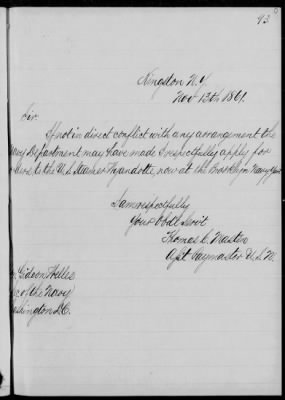 93
Kingston N.Y.
Nov 13th 1861.
Sir
If not in direct conflict with any arrangement the
Navy Department may have made I respectfully apply for
orders to the U.S. Steamer Wyandotte, now at the Brooklyn Navy Yard
I am respectfully
Your Obdt Servt
Thomas C. Masten
Asst Paymaster U.S.N.
Gideon Welles
of the Navy
Washington D.C.